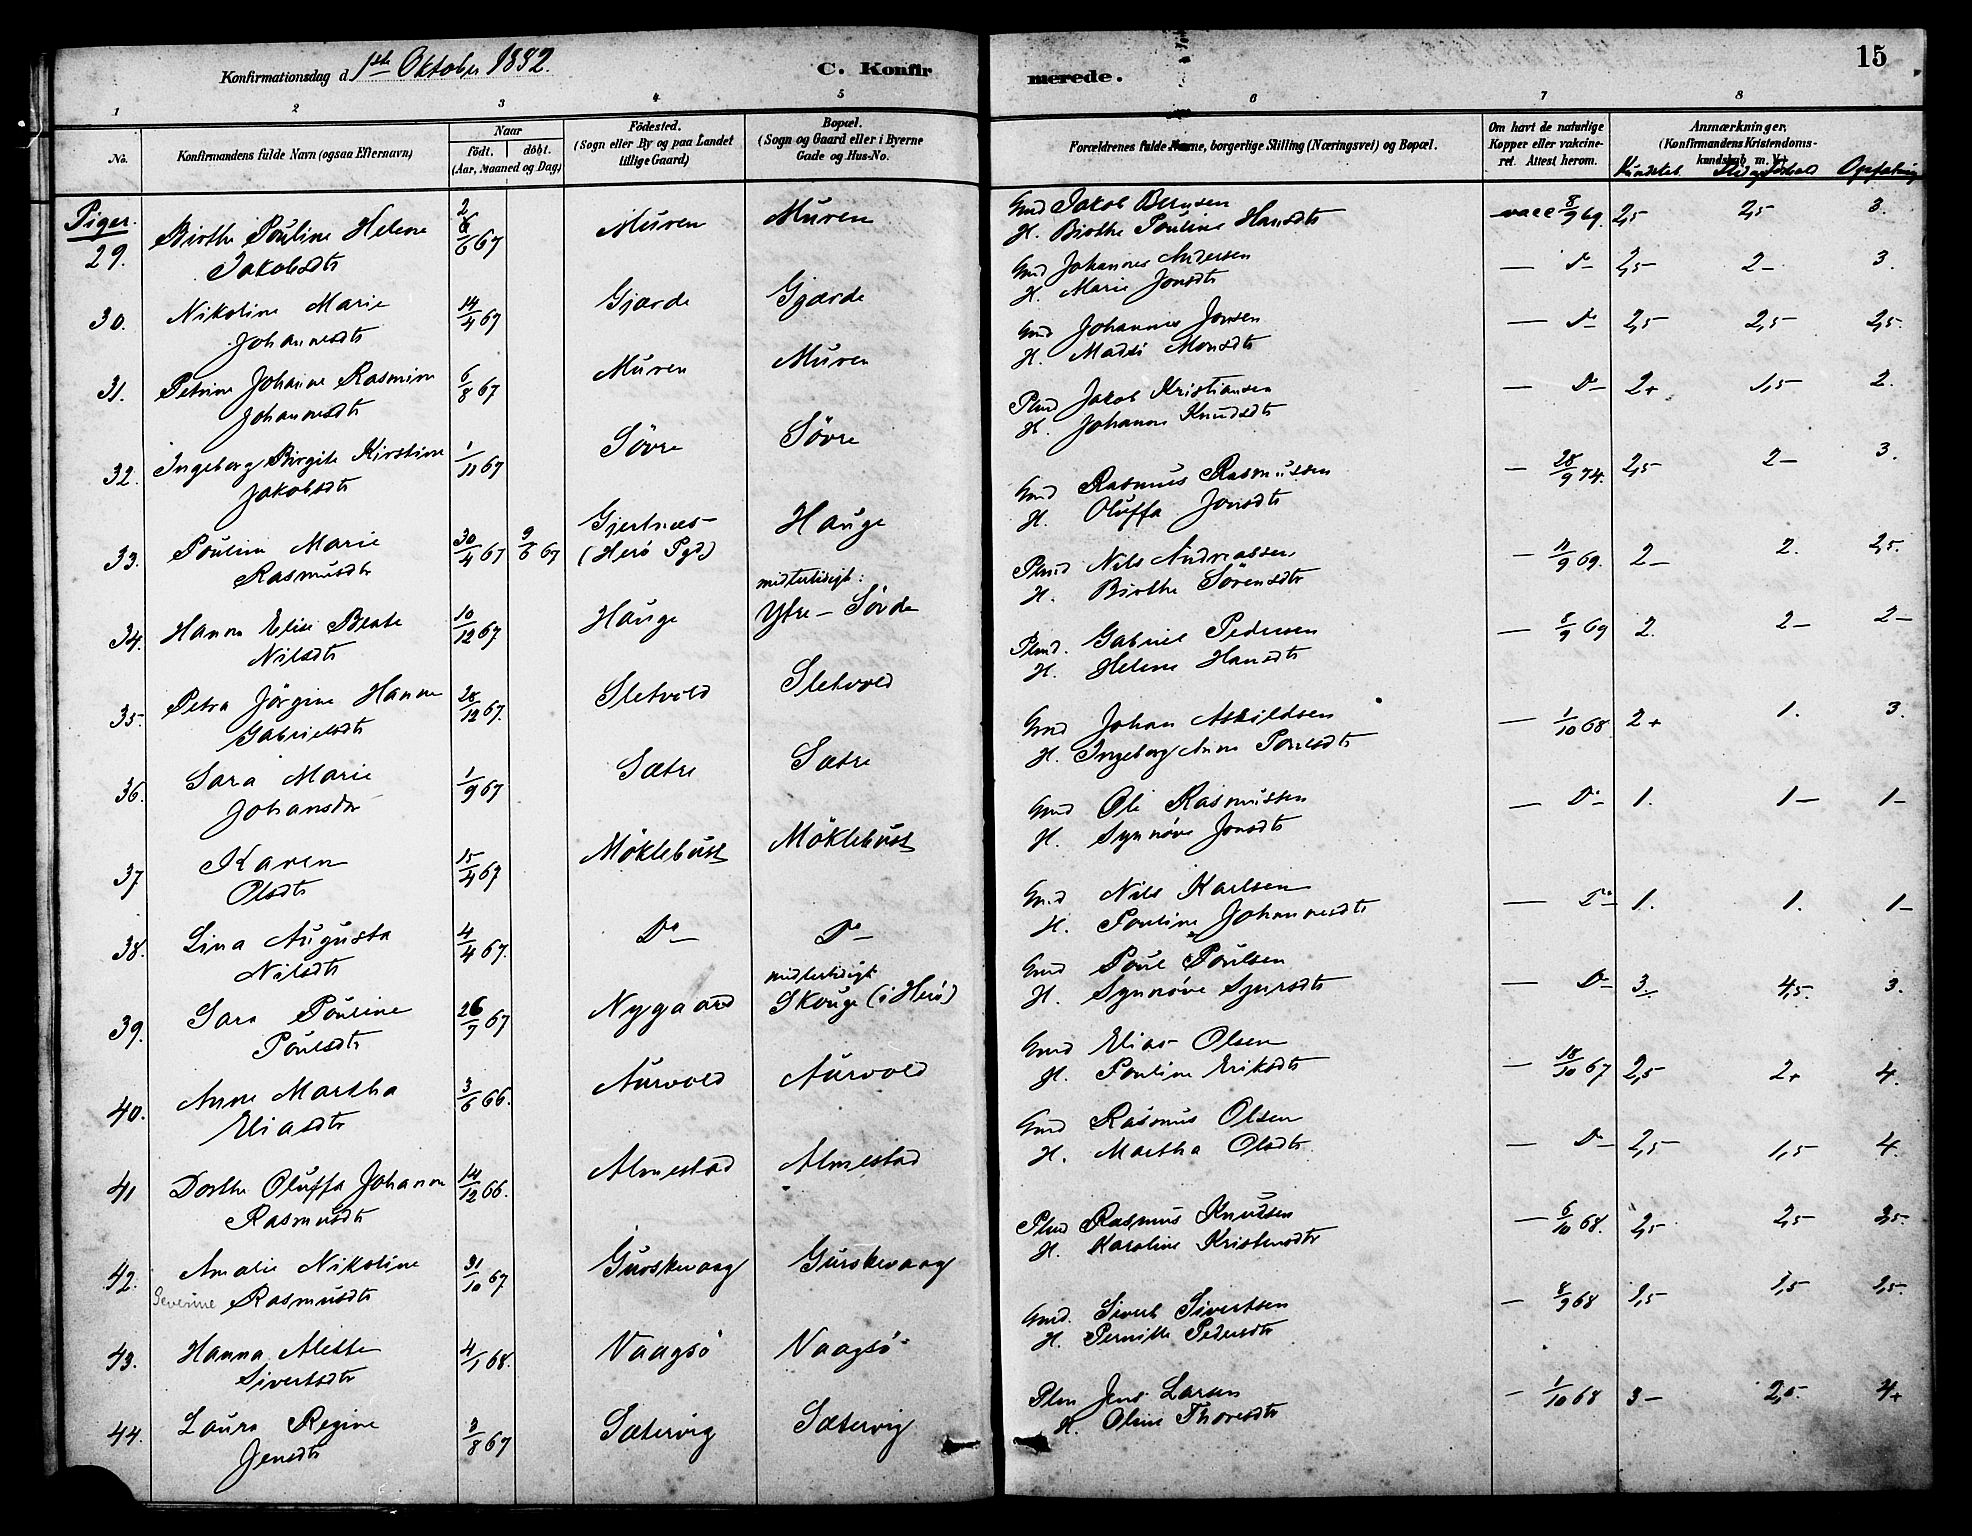 Konfirmationsdag d. 1ste Oktober 1882.
C. Konfir
merede.
15
1 2 3 4 5 6 7 8
No.
Konfirmandens fulde Navn (ogsaa Efternavn)
Naar
födt. döbt.
(Aar, Maaned og Dag)
Födested.
(Sogn eller By og paa Landet
tillige Gaard)
Bopæl.
(Sogn og Gaard eller i Byerne
Gade og Hus-No.
Forældrenes fulde Navne, borgerlige Stilling (Næringsvei) og Bopæl.
Om havt de naturlige
Kopper eller vakcine-
ret. Attest herom.
Anmærkninger.
(Konfirmandens Kristendoms-
kundskab m. V.)
Kundskab
Piger.
29. Birthe Pouline Helene 6/6 67 Muren Muren Gmd Jakob Berntsen vacc 8/9 69. 2,5 2,5 3.
Jakobsdtr H. Birthe Pouline Hansdtr
30. Nikoline Marie 14/4 67 Gjærde Gjærde Gmd Johannes Andersen — Do 2,5 2- 3.
Johannesdtr H. Marie Jonsdtr
31. Petrine Johanne Rasmine 6/8 67 Muren Muren Gmd Johannes Jonsen — Do 2,5 2,5 2,5.
Johannesdtr H. Madsi Monsdtr
32. Ingeborg Birgite Kirstine 1/11 67 Sövre Sövre Plmd Jakob Kristiansen — Do 2+ 1,5 2.
Jakobsdtr H. Johanne Knudsdtr
33. Pouline Marie 30/4 67 9/6 67 Gjertnæs Hauge Gmd Rasmus Rasmussen — 28/9 74. 2,5 2- 3.
Rasmusdtr (Herö Pgd) H. Oluffa Jonsdtr
34. Hanne Elise Beate 10/12 67 Hauge midlertidigt: Ytre-Sövde Plmd Nils Andreassen — 11/9 69. 2- 2. 2,5.
Nilsdtr H. Birthe Sörensdtr
35. Petra Jörgine Hanne 28/12 67. Sletvold Sletvold Plmd. Gabriel Pedersen — 8/9 69 2. 2- 2-
Gabrielsdtr H. Helene Hansdtr
36. Sara Marie 1/9 67 Sætre Sætre Gmd Johan Askildsen — 1/10 68 2+ 1. 3.
Johansdtr H. Ingeborg Anne Poulsdtr
37 Karen 15/4 67 Möklebust Möklebust Gmd Ole Rasmussen — Do 1. 1- 1-
Olsdtr H. Synnöve Jonsdtr
38. Lina Augusta 4/4 67. Do Do Gmd Nils Karlsen — Do 1. 1. 1-
Nilsdtr H. Pouline Johannesdtr
39. Sara Pouline 26/7 67 Nygaard midlertidigt Skouge (i Herö) Gmd Poul Poulsen — Do 3. 4,5. 3.
Poulsdtr H. Synnöve Sjursdtr
40. Anne Martha 3/6 66. Aurvold Aurvold Gmd Elias Olsen — 18/10 67 2,5 2+ 4.
Eliasdtr H. Pouline Eriksdtr
41 Dorthe Oluffa Johanne 14/12 66. Almestad Almestad Gmd Rasmus Olsen — Do 2,5 1,5 4.
Rasmusdtr H. Martha Olsdtr
42. Amalie Nikoline 31/10 67 Gurskevaag Gurskevaag Plmd Rasmus Knudsen — 6/10 68. 2,5 2,5
Severine Rasmusdtr H. Karoline Kristensdtr
43. Hanna Alette 4/1 68. Vaagsö Vaagsö Gmd. Sivert Sivertsen — 8/9 68 1,5 1,5
Sivertsdtr H. Pernille Pedersdtr
44. Laura Regine 3/8 67 Sætervig Sætervig Plm Jens Larsen — 1/10 68 3- 4+
Jensdtr H. Oline Thoresdtr